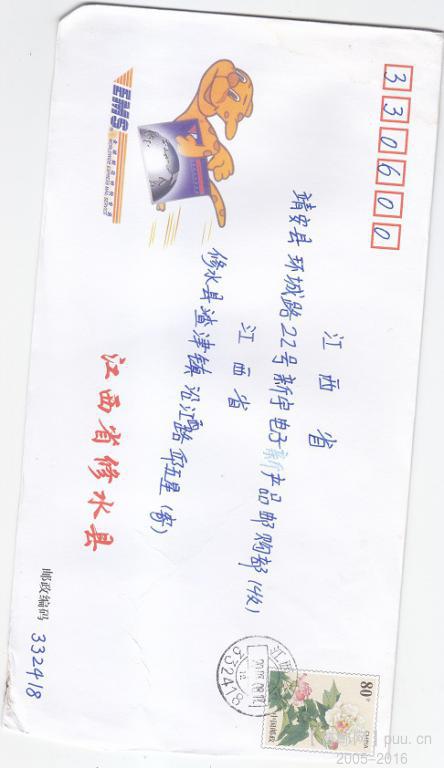 330600
江西省
靖安县环城路22号新中电子新产品邮购部(收)
江西省
修水县渣津镇沿江路邱五星(寄)
江西省修水县
邮政编码 332418
EMS
WORLDWIDE EXPRESS MAIL SERVICE
江西
332418
80分
中国邮政
CHINA
puu.cn
2005-2016